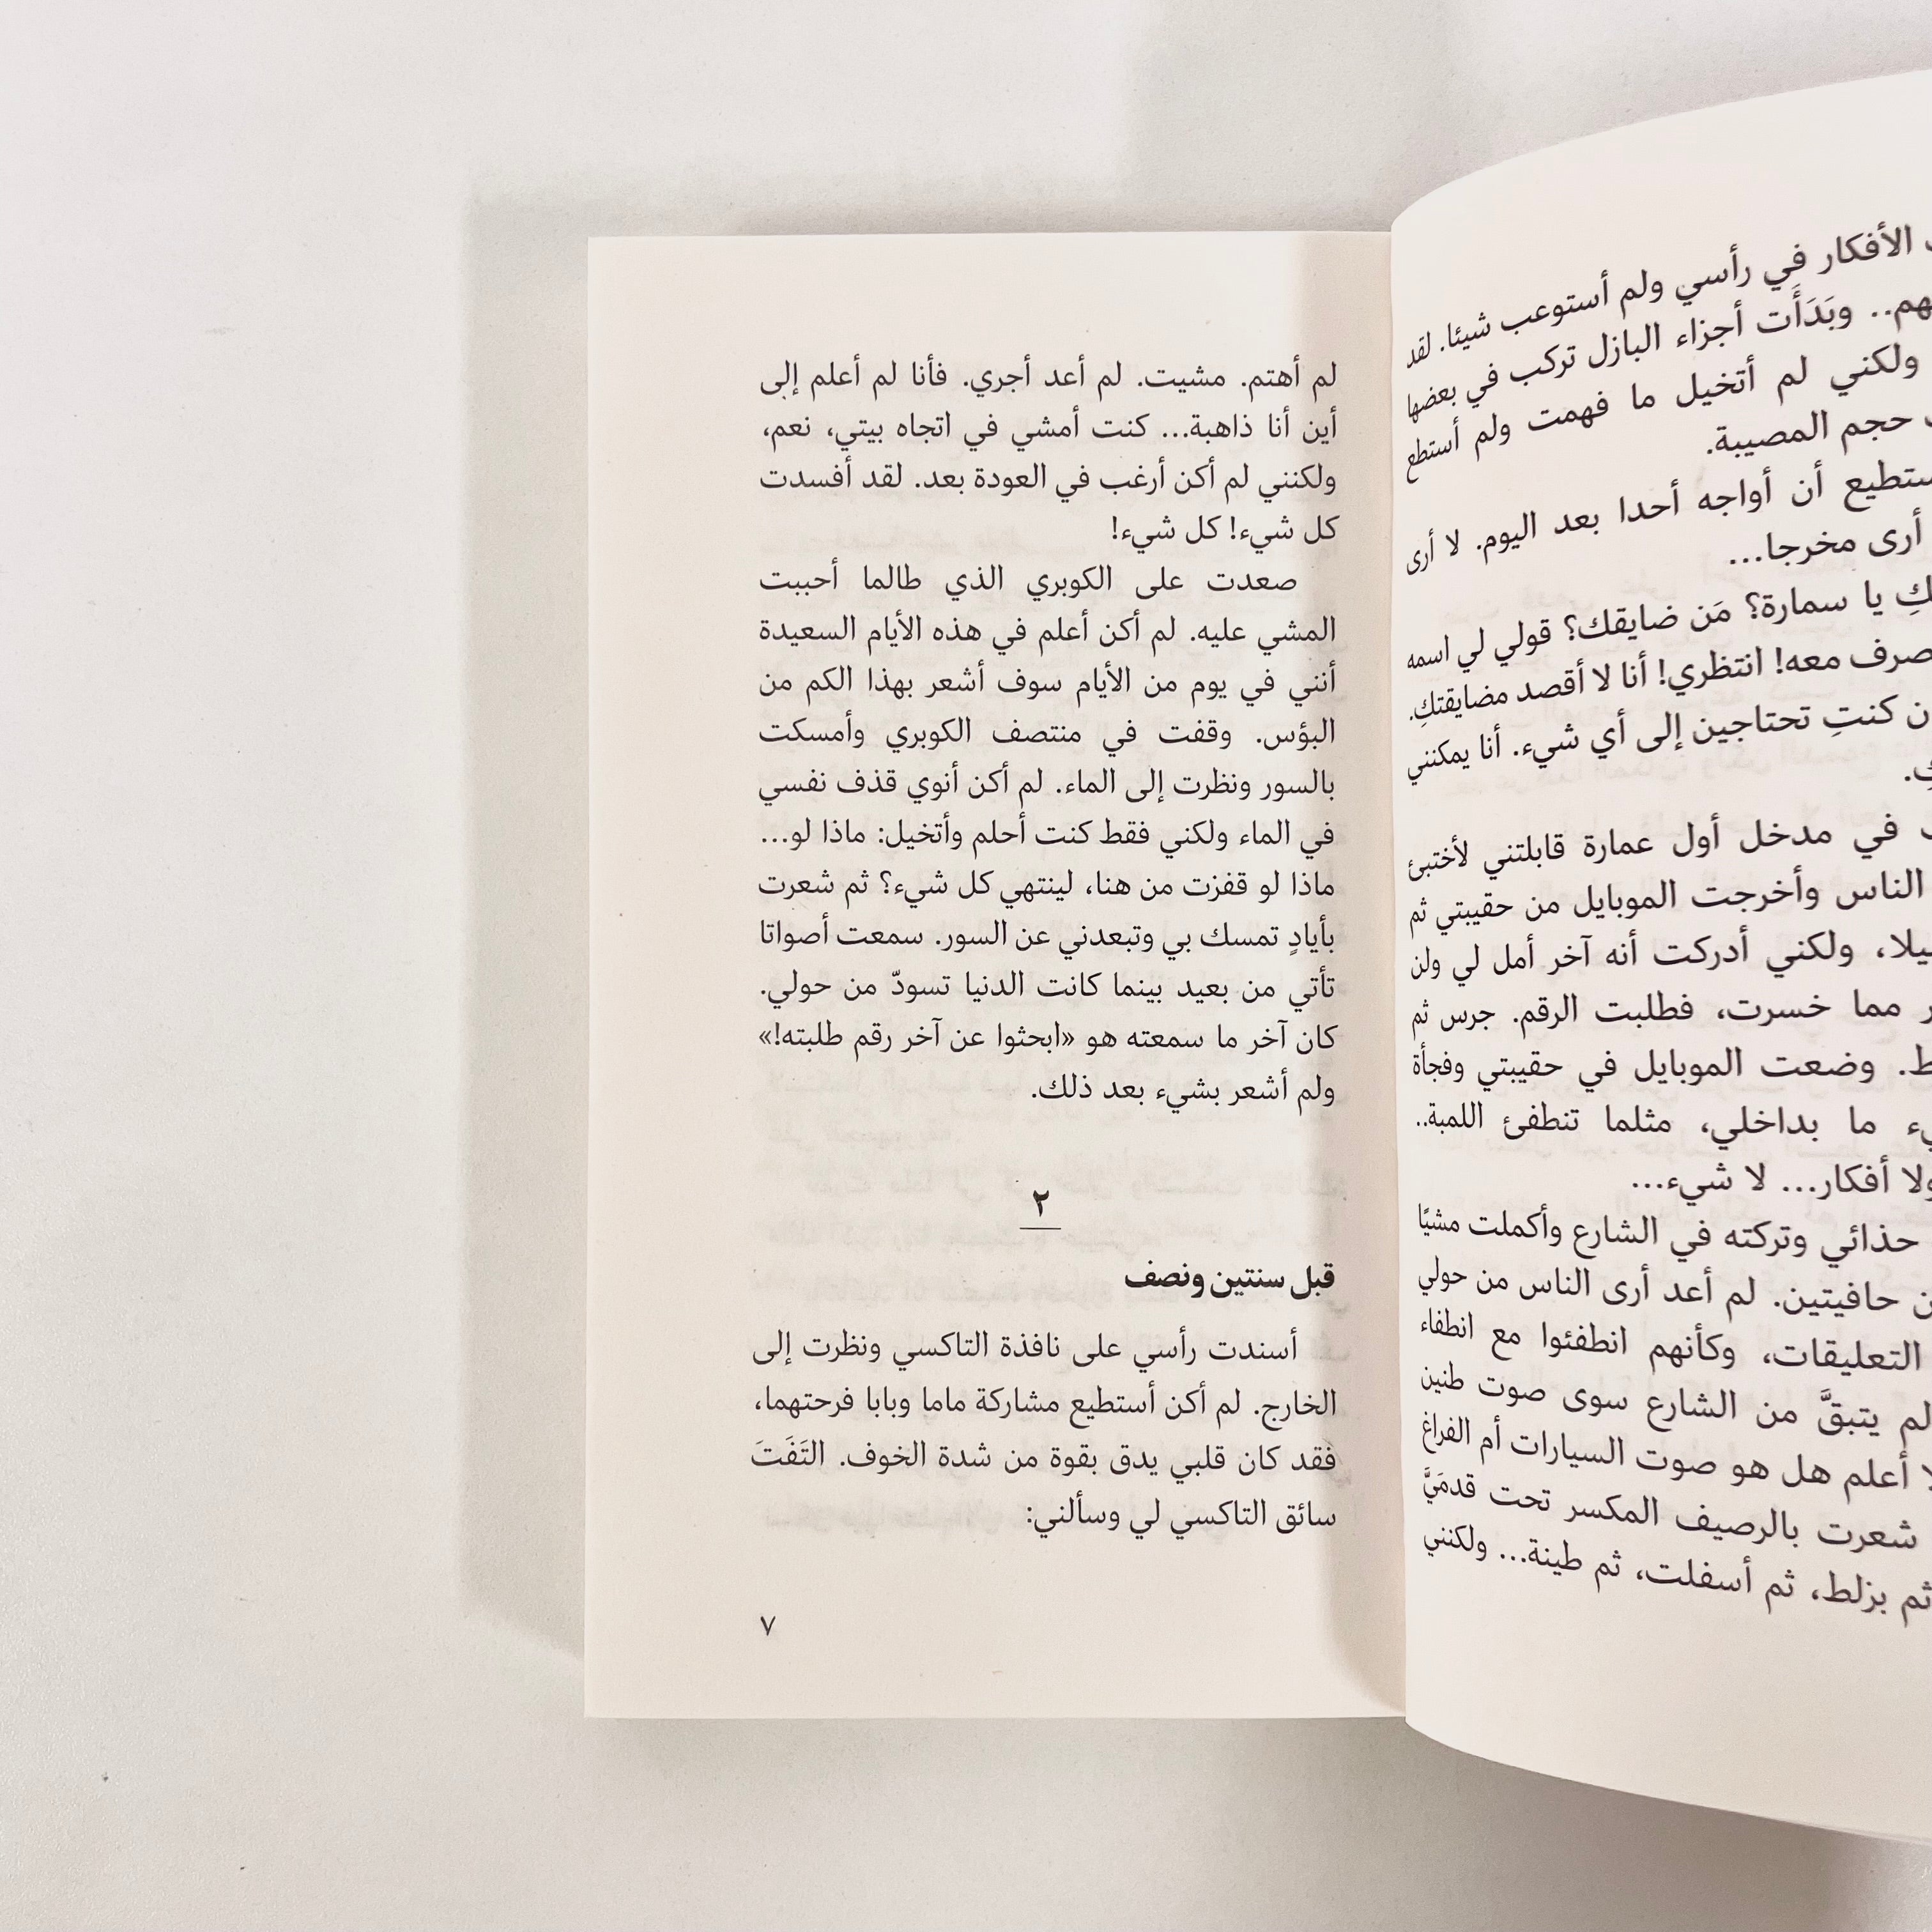 الأفكار في رأسي ولم أستوعب شيئا. لقد
وبَدَأَت أجزاء البازل تركب في بعضها
ولكني لم أتخيل ما فهمت ولم أستطع
حجم المصيبة.
أن أواجه أحدا بعد اليوم. لا أرى
أرى مخرجا...
يا سمارة؟ مَن ضايقك؟ قولي لي اسمه
معه! انتظري! أنا لا أقصد مضايقتكِ.
كنتِ تحتاجين إلى أي شيء. أنا يمكنني
في مدخل أول عمارة قابلتني لأختبئ
الناس وأخرجت الموبايل من حقيبتي ثم
ولكني أدركت أنه آخر أمل لي ولن
مما خسرت، فطلبت الرقم. جرس ثم
وضعت الموبايل في حقيبتي وفجأة
ما بداخلي، مثلما تنطفئ اللمبة..
ولا أفكار... لا شيء...
حذائي وتركته في الشارع وأكملت مشيًا
حافيتين. لم أعد أرى الناس من حولي
التعليقات، وكأنهم انطفئوا مع انطفاء
لم يتبقَّ من الشارع سوى صوت طنين
أعلم هل هو صوت السيارات أم الفراغ
شعرت بالرصيف المكسر تحت قدمَيَّ
ثم بزلط، ثم أسفلت، ثم طينة... ولكنني
لم أهتم. مشيت. لم أعد أجري. فأنا لم أعلم إلى
أين أنا ذاهبة... كنت أمشي في اتجاه بيتي، نعم،
ولكنني لم أكن أرغب في العودة بعد. لقد أفسدت
كل شيء! كل شيء!
صعدت على الكوبري الذي طالما أحببت
المشي عليه. لم أكن أعلم في هذه الأيام السعيدة
أنني في يوم من الأيام سوف أشعر بهذا الكم من
البؤس. وقفت في منتصف الكوبري وأمسكت
بالسور ونظرت إلى الماء. لم أكن أنوي قذف نفسي
في الماء ولكني فقط كنت أحلم وأتخيل: ماذا لو...
ماذا لو قفزت من هنا، لينتهي كل شيء؟ ثم شعرت
بأيادٍ تمسك بي وتبعدني عن السور. سمعت أصواتا
تأتي من بعيد بينما كانت الدنيا تسودّ من حولي.
كان آخر ما سمعته هو «ابحثوا عن آخر رقم طلبته!»
ولم أشعر بشيء بعد ذلك.
٢
قبل سنتين ونصف
أسندت رأسي على نافذة التاكسي ونظرت إلى
الخارج. لم أكن أستطيع مشاركة ماما وبابا فرحتهما،
فقد كان قلبي يدق بقوة من شدة الخوف. التَفَتَ
سائق التاكسي لي وسألني:
٧